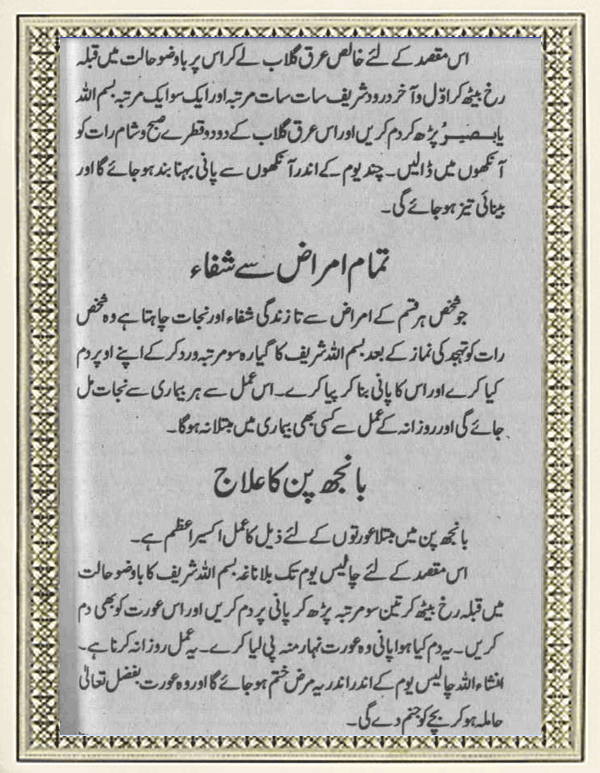 اس مقصد کے لئے خالص عرق گلاب لے کر اس پر باوضو حالت میں قبلہ
رخ بیٹھ کر اوّل و آخر درود شریف سات سات مرتبہ اور ایک سو ایک مرتبہ بسم اللہ
یا بَصِیْرُ پڑھ کر دم کریں اور اس عرق گلاب کے دو دو قطرے صبح و شام رات کو
آنکھوں میں ڈالیں۔ چند یوم کے اندر آنکھوں سے پانی بہنا بند ہو جائے گا اور
بینائی تیز ہو جائے گی۔
تمام امراض سے شفاء
جو شخص ہر قسم کے امراض سے تا زندگی شفاء اور نجات چاہتا ہے وہ شخص
رات کو تہجد کی نماز کے بعد بسم اللہ شریف کا گیارہ سو مرتبہ ورد کر کے اپنے اوپر دم
کیا کرے اور اس کا پانی بنا کر پیا کرے۔ اس عمل سے ہر بیماری سے نجات مل
جائے گی اور روزانہ کے عمل سے کسی بھی بیماری میں مبتلا نہ ہوگا۔
بانجھ پن کا علاج
بانجھ پن میں مبتلا عورتوں کے لئے ذیل کا عمل اکسیر اعظم ہے۔
اس مقصد کے لئے چالیس یوم تک بلا ناغہ بسم اللہ شریف کا باوضو حالت
میں قبلہ رخ بیٹھ کر تین سو مرتبہ پڑھ کر پانی پر دم کریں اور اس عورت کو بھی دم
کریں۔ یہ دم کیا ہوا پانی وہ عورت نہار منہ پی لیا کرے۔ یہ عمل روزانہ کرنا ہے۔
انشاء اللہ چالیس یوم کے اندر اندر یہ مرض ختم ہو جائے گا اور وہ عورت بفضل تعالیٰ
حاملہ ہو کر بچے کو جنم دے گی۔